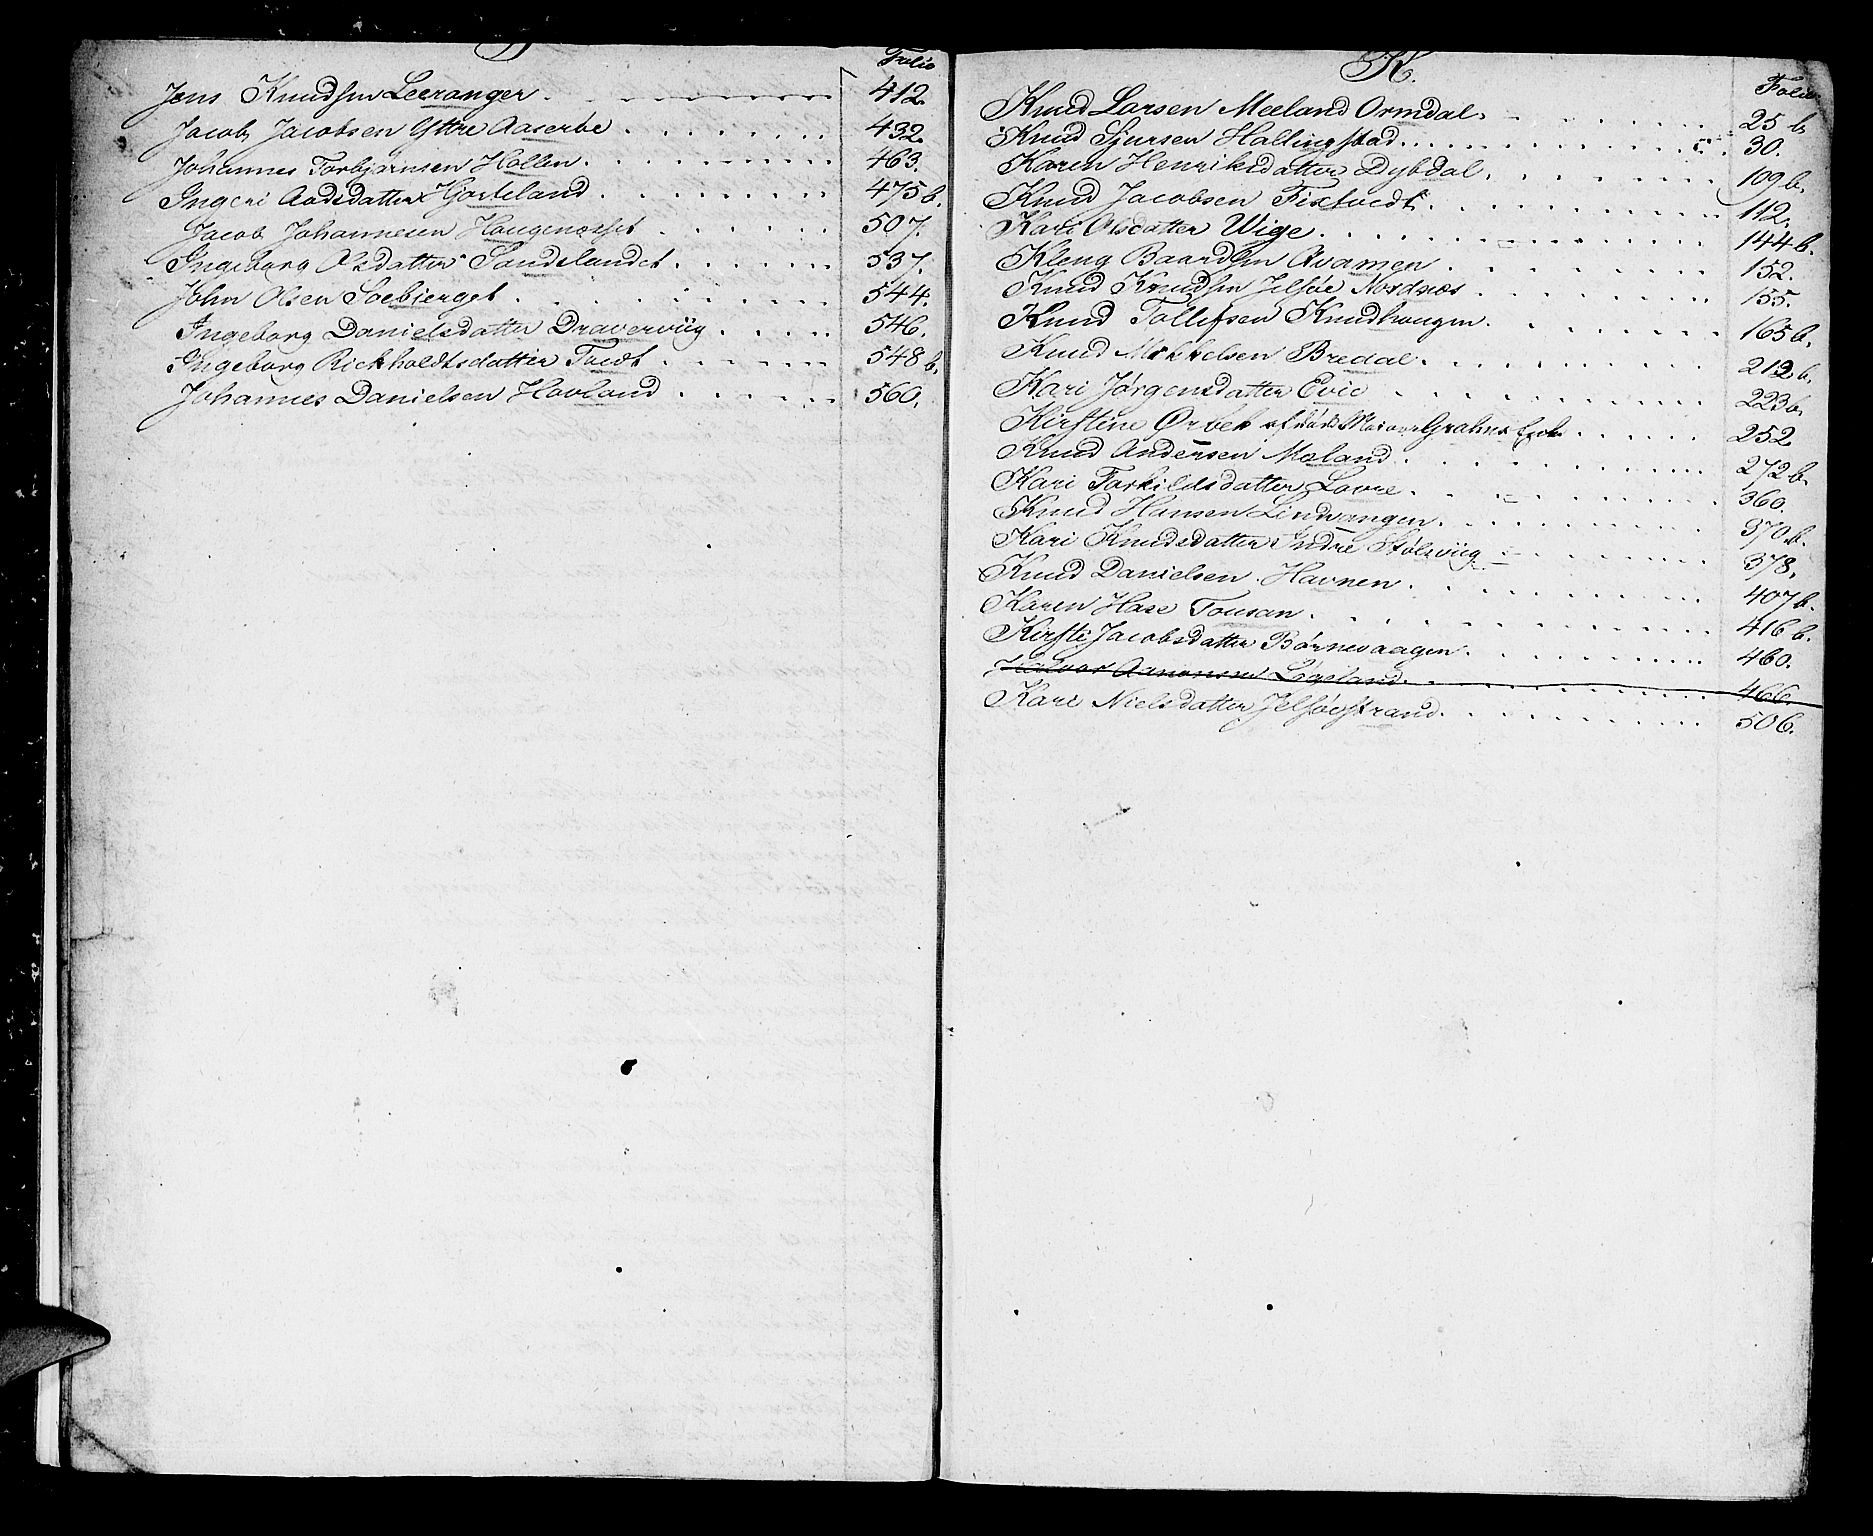 Folio
Jens Knudsen Leeranger 412.
Jacob Jacobsen Yttre Aaserbø 432.
Johannes Torbjørnsen Hollen 463.
Ingeri Aadsdatter Hjorteland 475 b.
Jacob Johannesen Haugenæsset 507.
Ingeborg Olsdatter Sandslandet 537.
John Olsen Soebierget 544.
Ingeborg Danielsdatter Draverviig 546.
Ingeborg Rickholdtsdatter Tvedt 548 b.
Johannes Danielsen Hovland 560.
K.
Folio
Knud Larsen Mæland Ormdal 25 b
Knud Sjursen Hallingstad 30.
Karen Henriksdatter Dybdal 109 b.
Knud Jacobsen Fixtvedt 112.
Kari Olsdatter Wige 144 b.
Kleng Baardsen Qvamen 152.
Knud Knudsen Jelsøe Nordnæs 155.
Knud Tollefsen Knudhougen 165 b.
Knud Mikkelsen Bredal 212 b.
Kari Jørgensdatter Evie 223 b.
Kirstine Ørbek Grahns Enke 252
Knud Andersen Mæland 272 b.
Kari Torkildsdatter Lovre 360.
Knud Hansen Lindvangen 370 b.
Kari Knudsdatter Indre Stølsviig 378.
Knud Danielsen Havnen 407 b.
Karen Hase Tousan 416 b.
Kirsti Jacobsdatter Børnevaagen 460.
Halvor Aanonsen Ligsland 466.
Kari Nielsdatter Jelsøestrand 506.